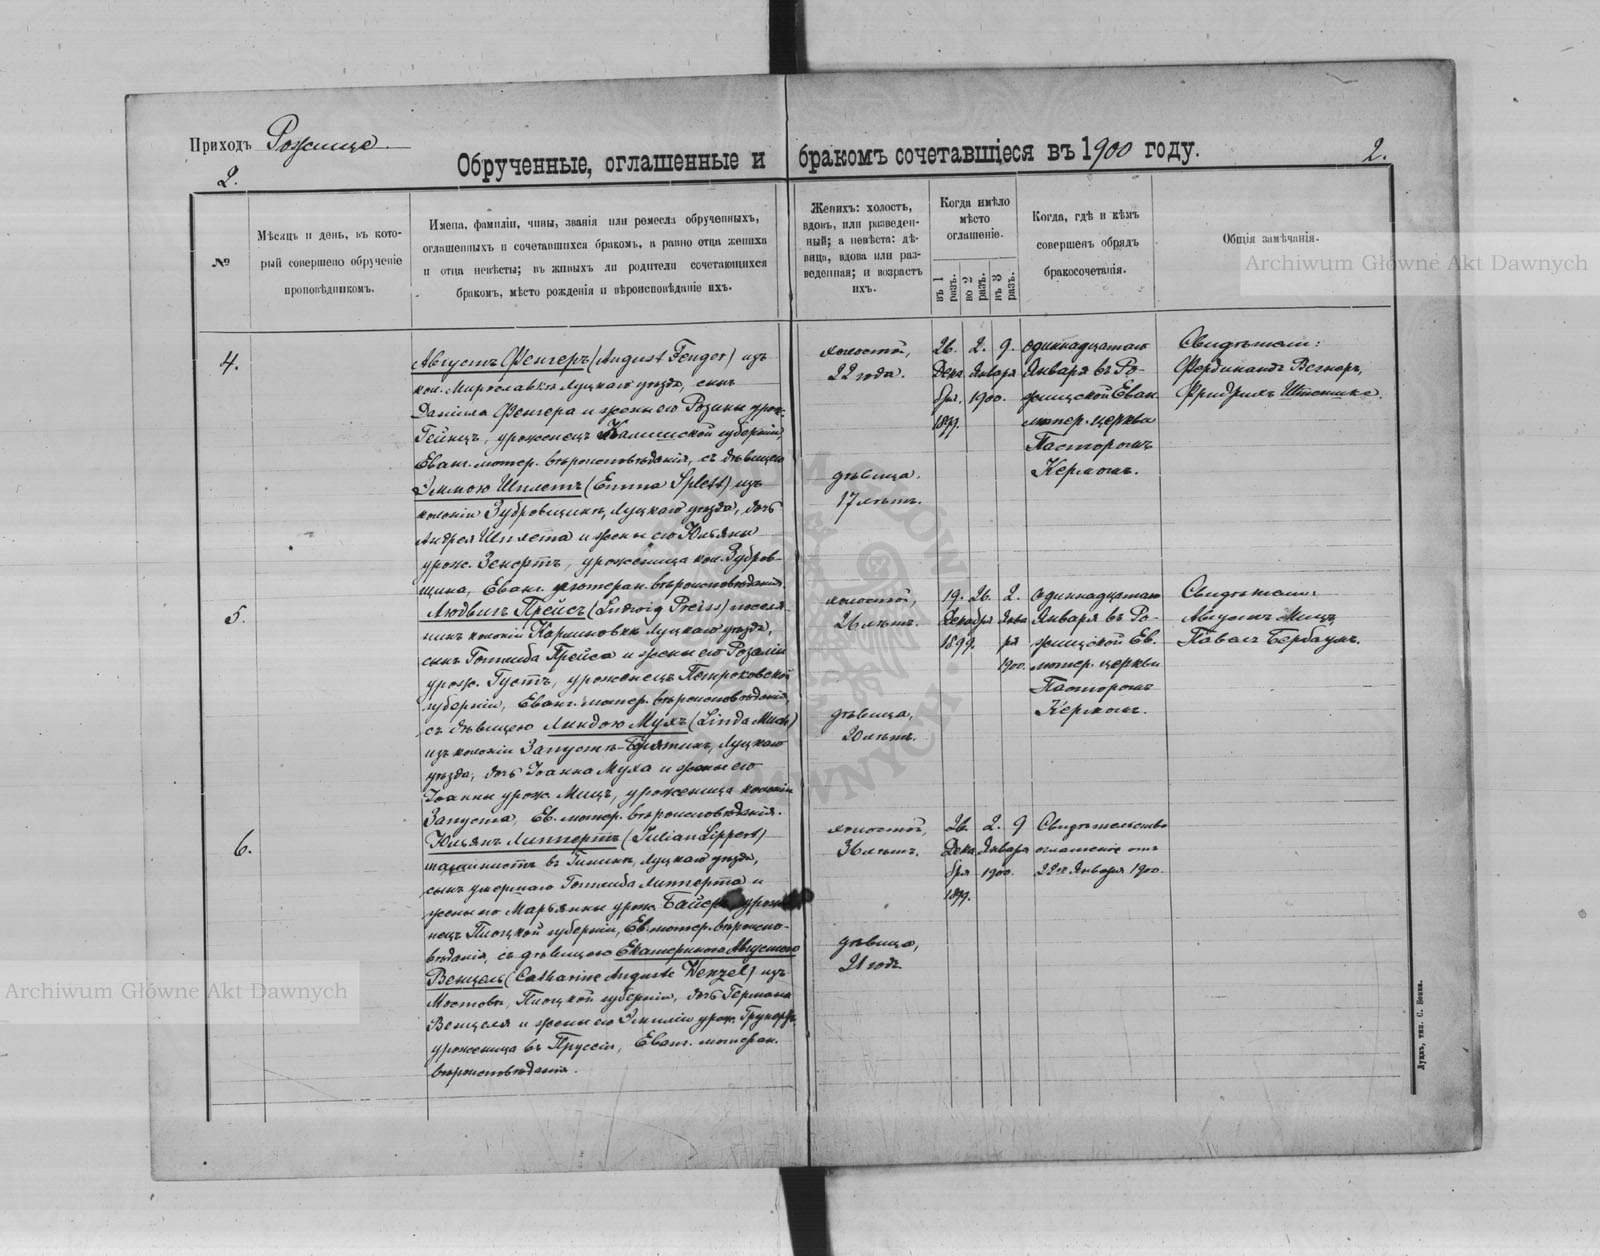 Приходъ Рожище
Обрученные, оглашенные и бракомъ сочетавшіеся въ 1900 году.
2.
2.
№
Мѣсяцъ и день, въ кото-
рый совершено обрученіе
проповѣдникомъ.
Имена, фамиліи, чины, званія или ремесла обрученныхъ,
оглашенныхъ и сочетавшихся бракомъ, а равно отца жениха
и отца невѣсты; въ живыхъ ли родители сочетающихся
бракомъ, мѣсто рожденія и вѣроисповѣданіе ихъ.
Женихъ: холостъ,
вдовъ, или разведен-
ный; а невѣста: дѣ-
вица, вдова или раз-
веденная; и возрастъ
ихъ.
Когда имѣло
мѣсто
оглашеніе.
въ 1 разъ.
во 2 разъ.
въ 3 разъ.
Когда, гдѣ и кѣмъ
совершенъ обрядъ
бракосочетанія.
Общія замѣчанія.
Archiwum Główne Akt Dawnych
4.
Августъ Фенгеръ (August Fenger) изъ
кол. Мирославки Луцкаго уѣзда, сынъ
Даніила Фенгера и жены его Розины урож.
Гейнцъ, уроженецъ Калишской губерніи,
Еванг. лютер. вѣроисповѣданія, съ дѣвицею
Эммою Шплетъ (Emma Splett) изъ
колоніи Зубровщинѣ, Луцкаго уѣзда, дочь
Андрея Шплета и жены его Юльяны
урож. Зекертъ, уроженица кол. Зубров-
щина, Еванг. лютеран. вѣроисповѣданія.
холостой,
22 года.
дѣвица.
17 лѣтъ.
26. 2. 9.
Дека Января
бря. 1900.
1899.
одиннадцатаго
Января въ Ро-
жищской Еван.
лютер. церкви
Пасторомъ
Кермомъ.
Свидѣтели:
Фердинандъ Вегнеръ,
Фридрихъ
5.
Людвигъ Прейсъ (Ludwig Preiss) поселя-
нинъ колоніи Каролиновки Луцкаго уѣзда,
сынъ Готлиба Прейса и жены его Розаліи
урож. Густъ, уроженецъ Петроковской
губерніи, Еванг. лютер. вѣроисповѣданія,
съ дѣвицею Линдою Мухъ (Linda Much)
изъ колоніи Запустъ-Брятинъ, Луцкаго
уѣзда, дочь Іоанна Муха и жены его
Іоанны урож. Мицъ, уроженица колоніи
Запуста, Ев. лютер. вѣроисповѣданія.
холостой,
26 лѣтъ.
дѣвица,
20 лѣтъ.
19. 26. 2.
Декабря Янва
1899. ря
1900.
Одиннадцатаго
Января въ Ро-
жищской Ев.
лютер. церкви
Пасторомъ
Кермомъ.
Свидѣтели:
Августъ Мицъ,
Павелъ Бербаумъ.
6.
Юльянъ Липпертъ (Julian Lippert)
машинистъ въ Луцкаго уѣзда,
сынъ умершаго Готлиба Липперта и
жены его Марьянны урож. Байеръ, уроже-
нецъ Плоцкой губерніи, Ев. лютер. вѣроиспо-
вѣданія, съ дѣвицею Екатериною Августою
Венцель (Catharine Auguste Wenzel) изъ
Мостовъ, Плоцкой губерніи, дочь Германа
Венцеля и жены его Эмиліи урож.
уроженица въ Пруссіи, Еванг. лютеран.
вѣроисповѣданія.
холостой,
36 лѣтъ.
дѣвица,
21 годъ
26. 2. 9
Дека Января
бря 1900.
1899.
Свидѣтельство
оглашенія отъ
22го Января 1900.
Archiwum Główne Akt Dawnych
Луцкъ, тип. С. Бонка.